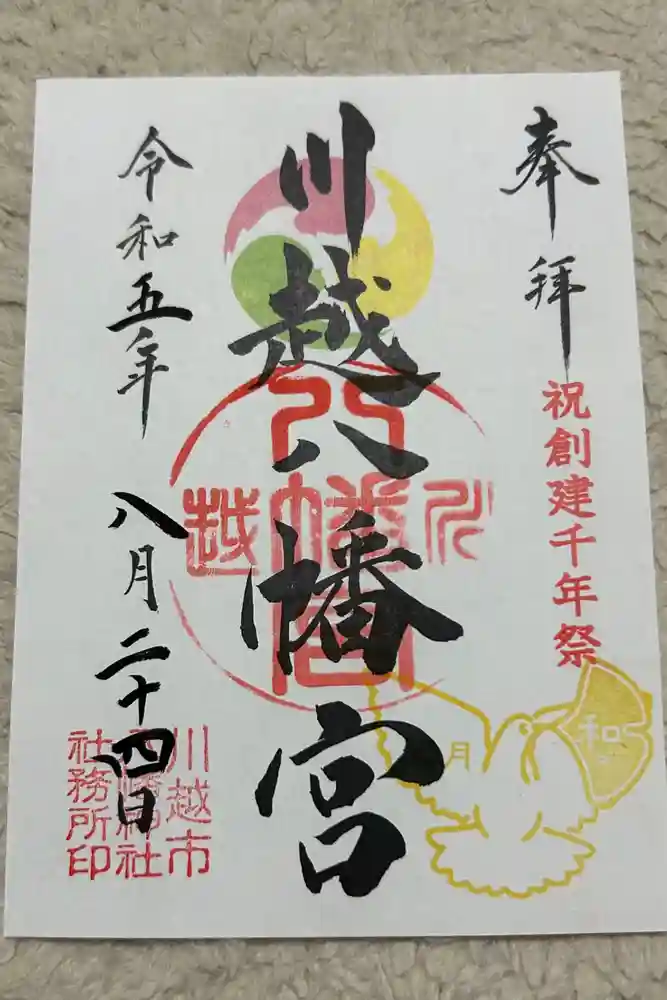 奉拝
祝創建千年祭
川越八幡宮
川越
八幡宮
和
月
令和五年
八月二十四日
川越市
八幡神社
社務所印